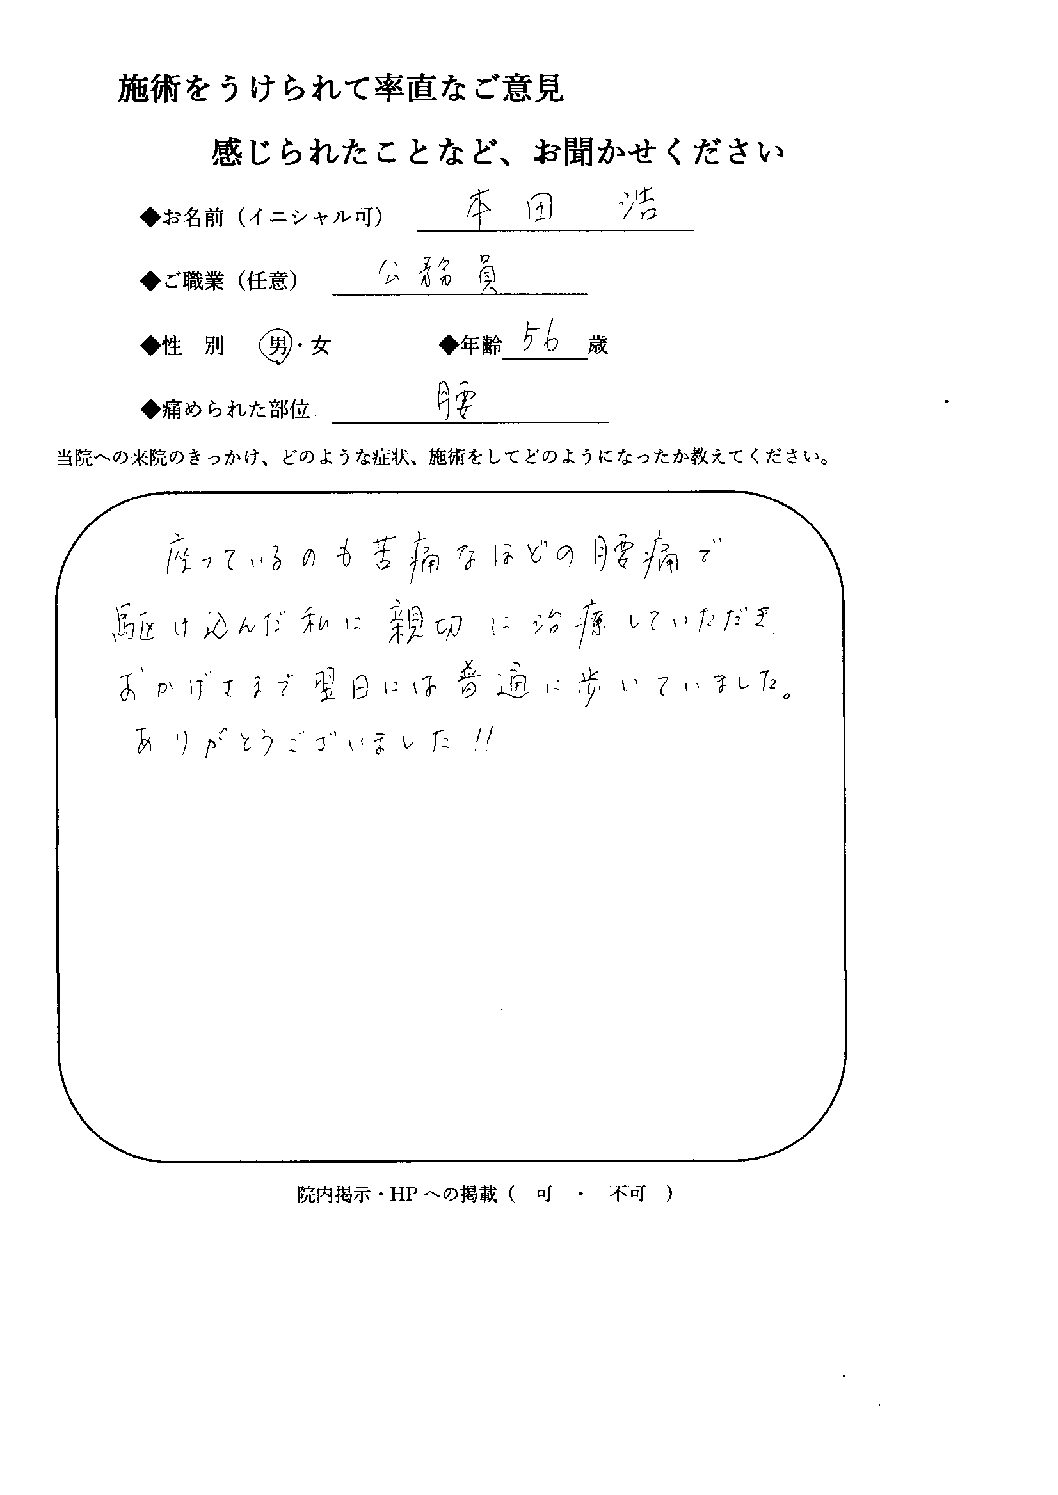 施術をうけられて率直なご意見
感じられたことなど、お聞かせください
◆お名前（イニシャル可） 本田 浩
◆ご職業（任意） 公務員
◆性 別 男・女 ◆年齢 56 歳
◆痛められた部位 腰
当院への来院のきっかけ、どのような症状、施術をしてどのようになったか教えてください。
座っているのも苦痛なほどの腰痛で
駆け込んだ私に親切に治療していただき
おかげさまで翌日には普通に歩いていました。
ありがとうございました!!
院内掲示・HPへの掲載（ 可 ・ 不可 ）